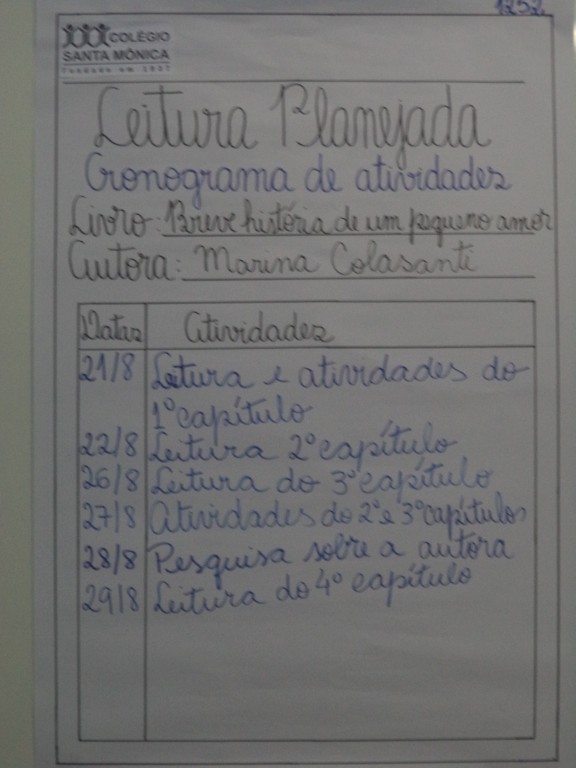 1252
COLÉGIO
SANTA MÔNICA
Fundado em 1937
Leitura Planejada
Cronograma de atividades
Livro: Breve história de um pequeno amor
Autora: Marina Colasanti
Datas Atividades
21/8 Leitura e atividades do
1º capítulo
22/8 Leitura 2º capítulo
26/8 Leitura do 3º capítulo
27/8 Atividades do 2º e 3º capítulos
28/8 Pesquisa sobre a autora
29/8 Leitura do 4º capítulo